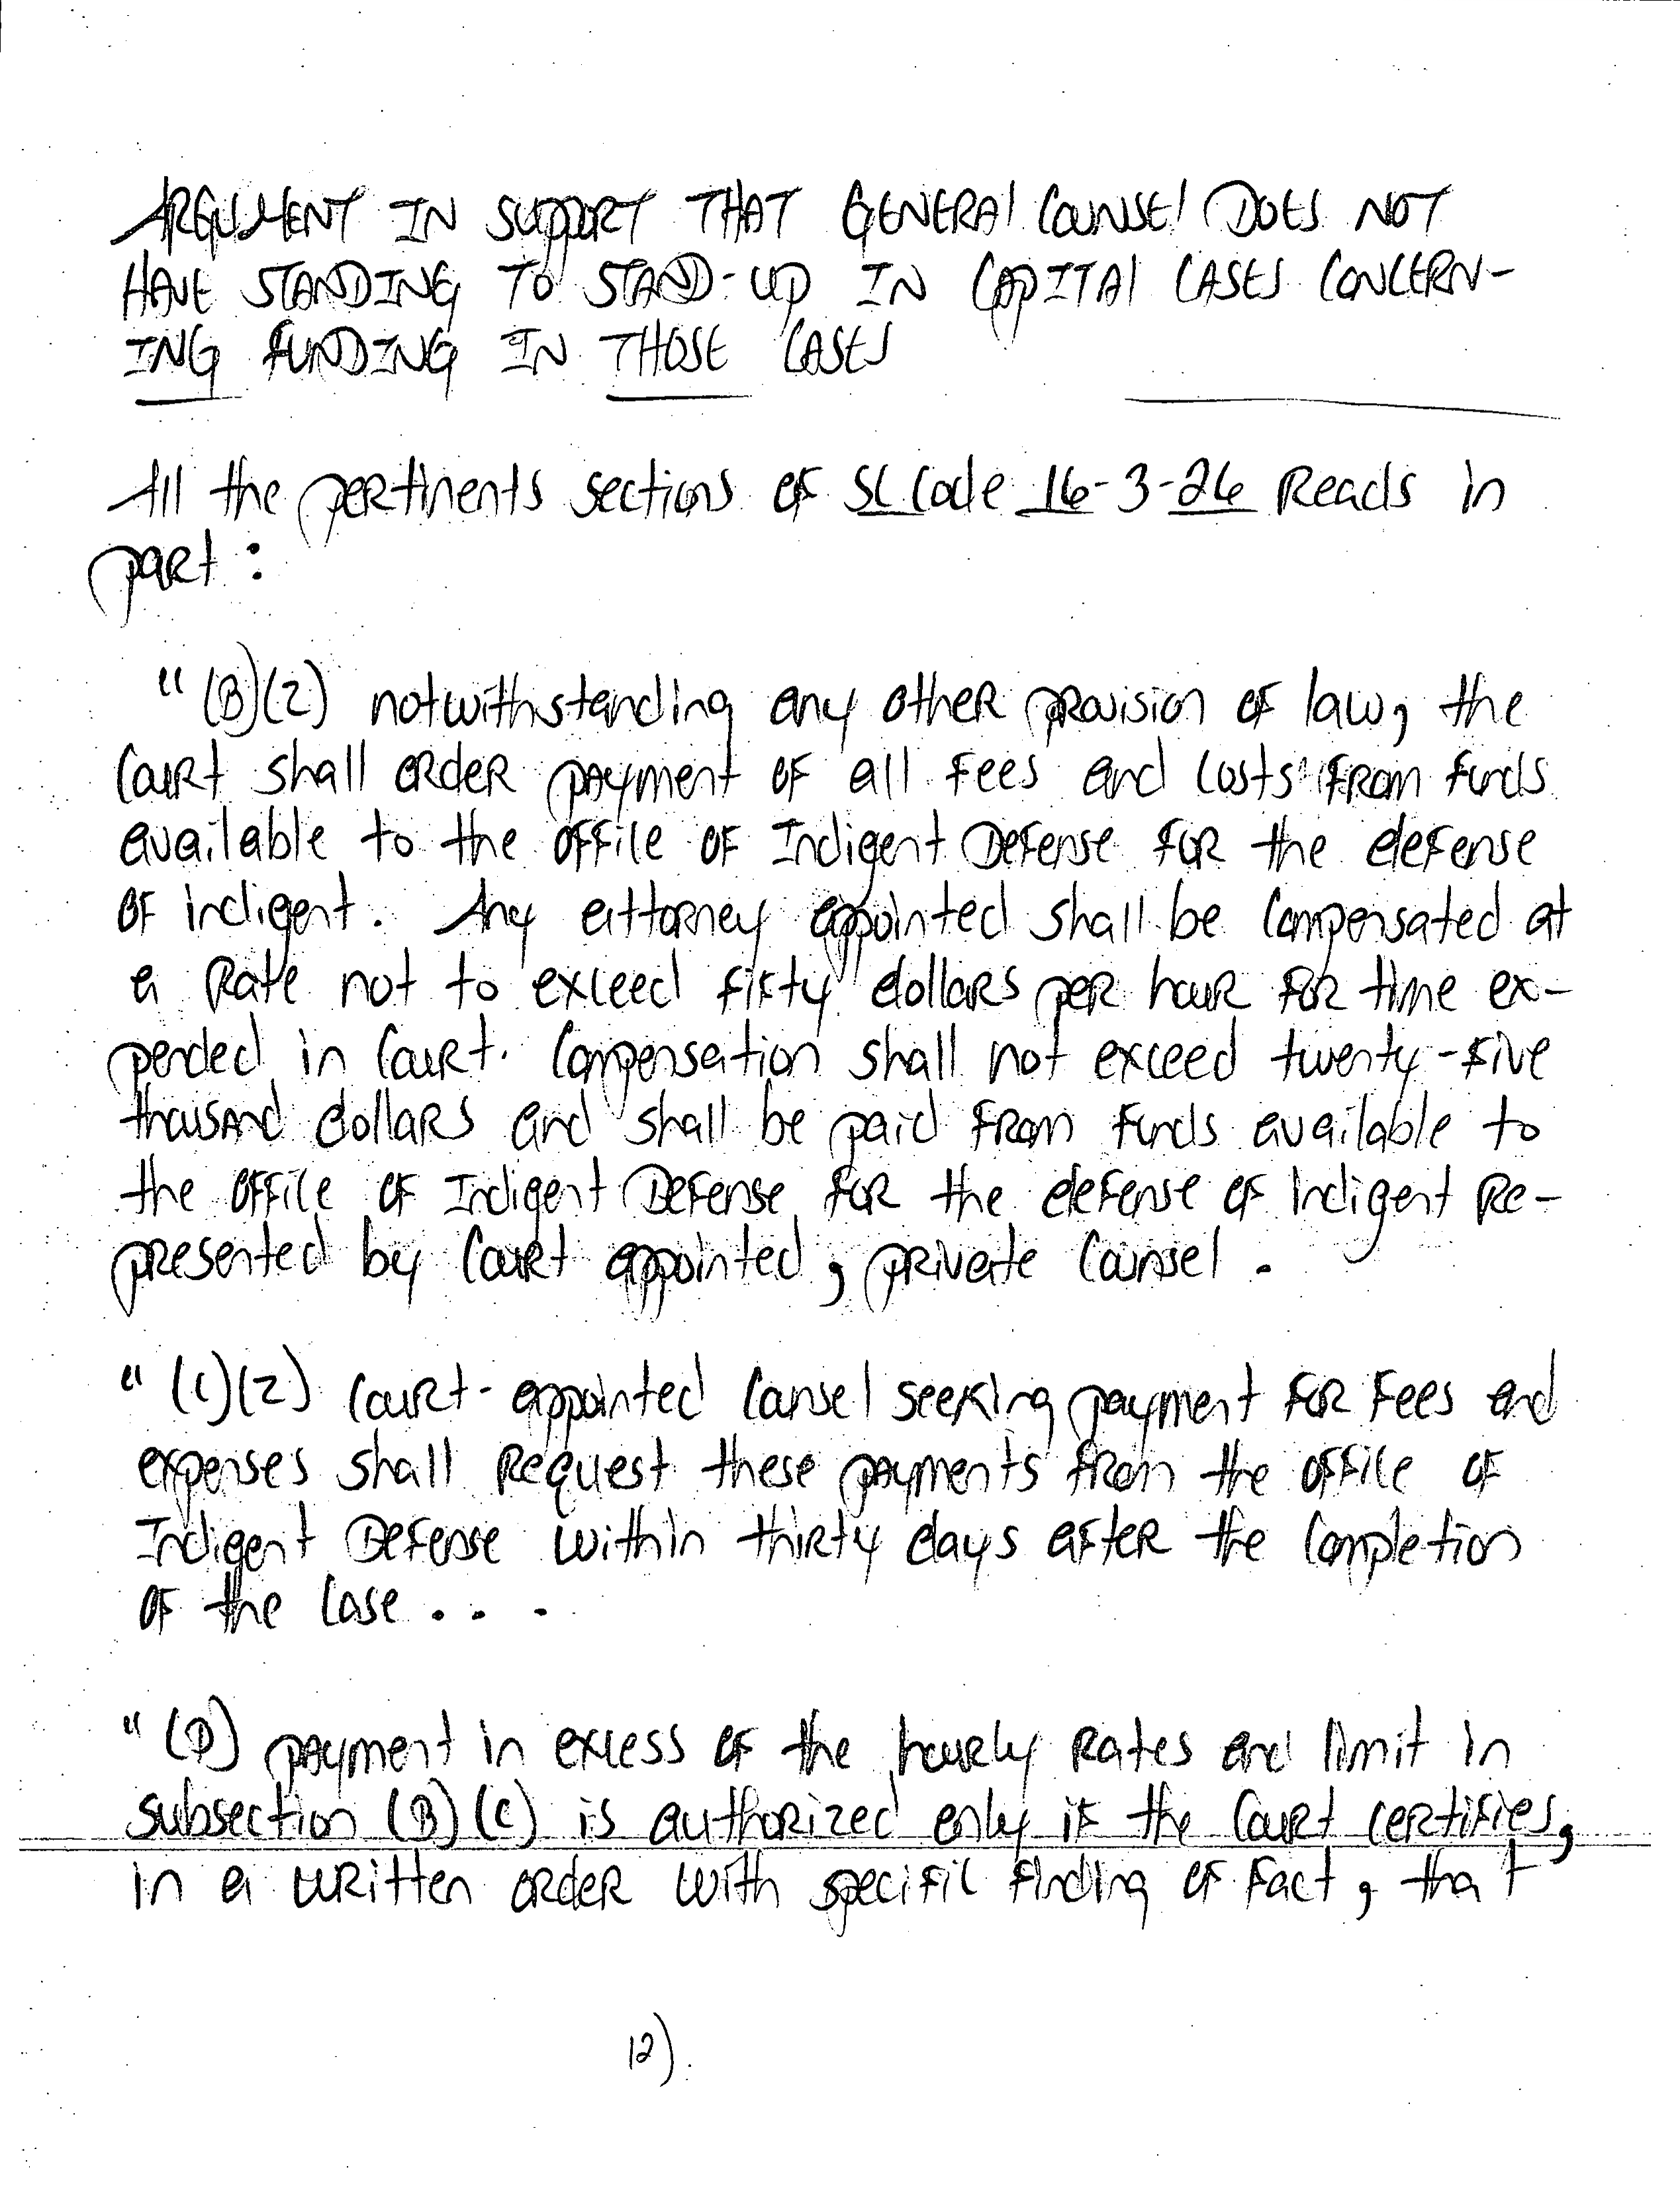 ARGUMENT IN SUPPORT THAT GENERAL COUNSEL DOES NOT
HAVE STANDING TO STAND-UP IN CAPITAL CASES CONCERN-
ING FUNDING IN THOSE CASES
All the pertinents sections of SC Code 16-3-26 Reads in
part :
" (B)(2) notwithstanding any other provision of law, the
Court shall order payment of all fees and costs from funds
available to the office of Indigent Defense for the defense
of indigent. Any attorney appointed shall be compensated at
a rate not to exceed fifty dollars per hour for time ex-
pended in court. Compensation shall not exceed twenty-five
thousand dollars and shall be paid from funds available to
the office of Indigent Defense for the defense of indigent re-
presented by court appointed, private counsel.
" (C)(2) court-appointed cansel seeking payment for fees and
expenses shall request these payments from the office of
Indigent Defense within thirty days after the completion
of the case . . .
" (D) payment in excess of the hourly rates and limit in
subsection (B) (C) is authorized only if the court certifies,
in a written order with specific finding of fact, that
12).